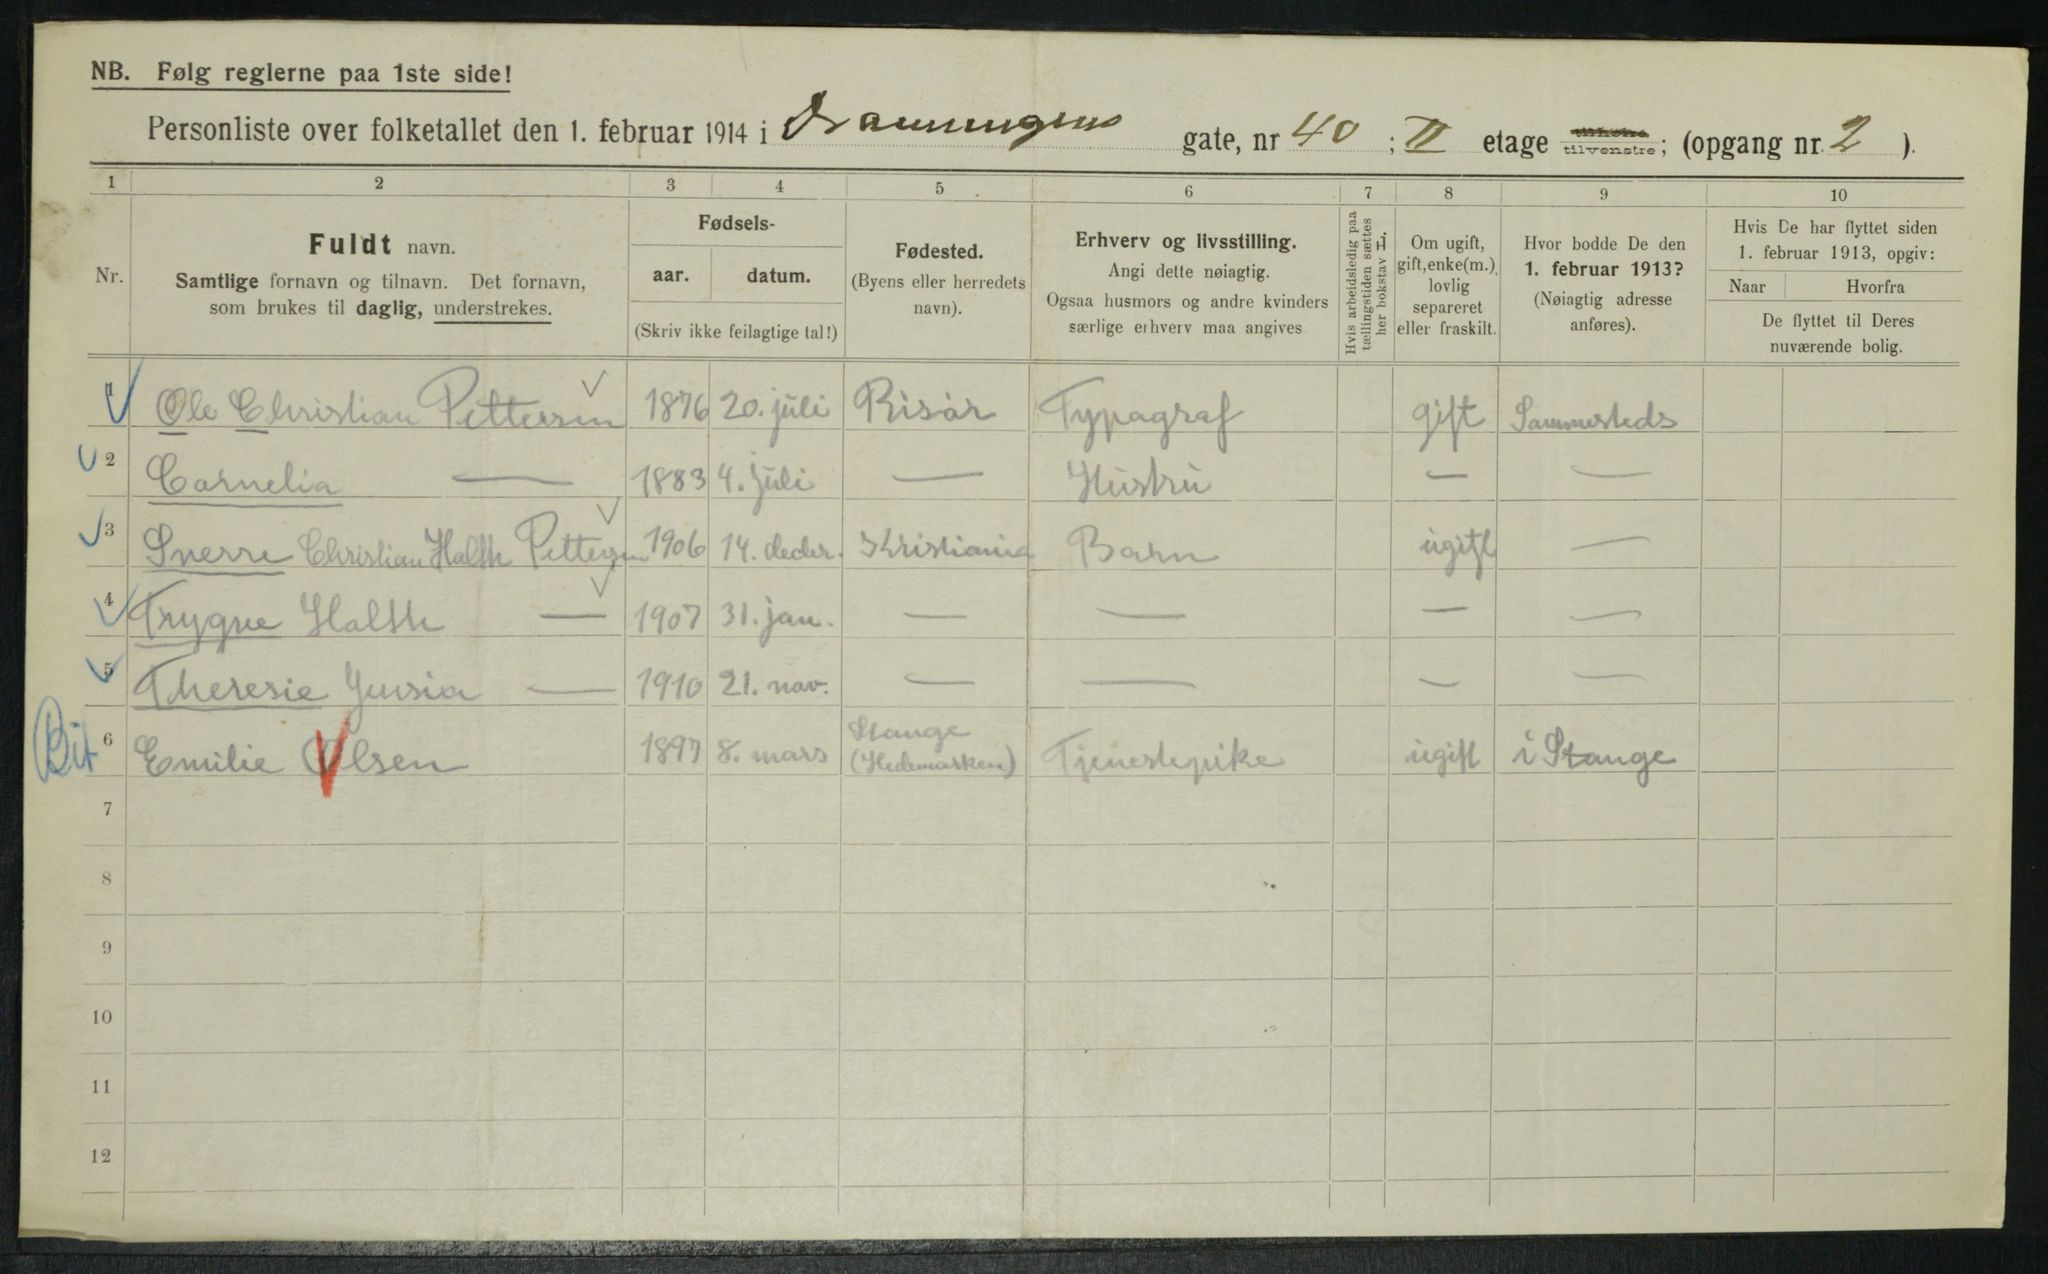 NB. Følg reglerne paa 1ste side!
Personliste over folketallet den 1. februar 1914 i Dronningens gate, nr 40 ; II etage tilhøire tilvenstre; (opgang nr. 2 ).
1 2 3 4 5 6 7 8 9 10
Nr.
Fuldt navn.
Samtlige fornavn og tilnavn. Det fornavn,
som brukes til daglig, understrekes.
Fødsels-
aar. datum.
(Skriv ikke feilagtige tal!)
Fødested.
(Byens eller herredets
navn).
Erhverv og livsstilling.
Angi dette nøiagtig.
Ogsaa husmors og andre kvinders
særlige erhverv maa angives
Hvis arbeidsledig paa
tællingstiden sættes
her bokstav L.
Om ugift,
gift, enke(m.),
lovlig
separeret
eller fraskilt.
Hvor bodde De den
1. februar 1913?
(Nøiagtig adresse
anføres).
Hvis De har flyttet siden
1. februar 1913, opgiv:
Naar Hvorfra
De flyttet til Deres
nuværende bolig.
1 Ole Christian Pettersen 1876 20. juli Risør Typograf gift Sammesteds
2 Cornelia — 1883 4. juli — Hustru — —
3 Sverre Christian Halth Pettersen 1906 14. decbr. Kristiania Barn ugift —
4 Trygve Halth — 1907 31. jan. — — — —
5 Theresie — 1910 21. nov. — — — —
Bit 6 Emilie Olsen 1897 8. mars Stange (Hedemarken) Tjenestepike ugift i Stange
7
8
9
10
11
12